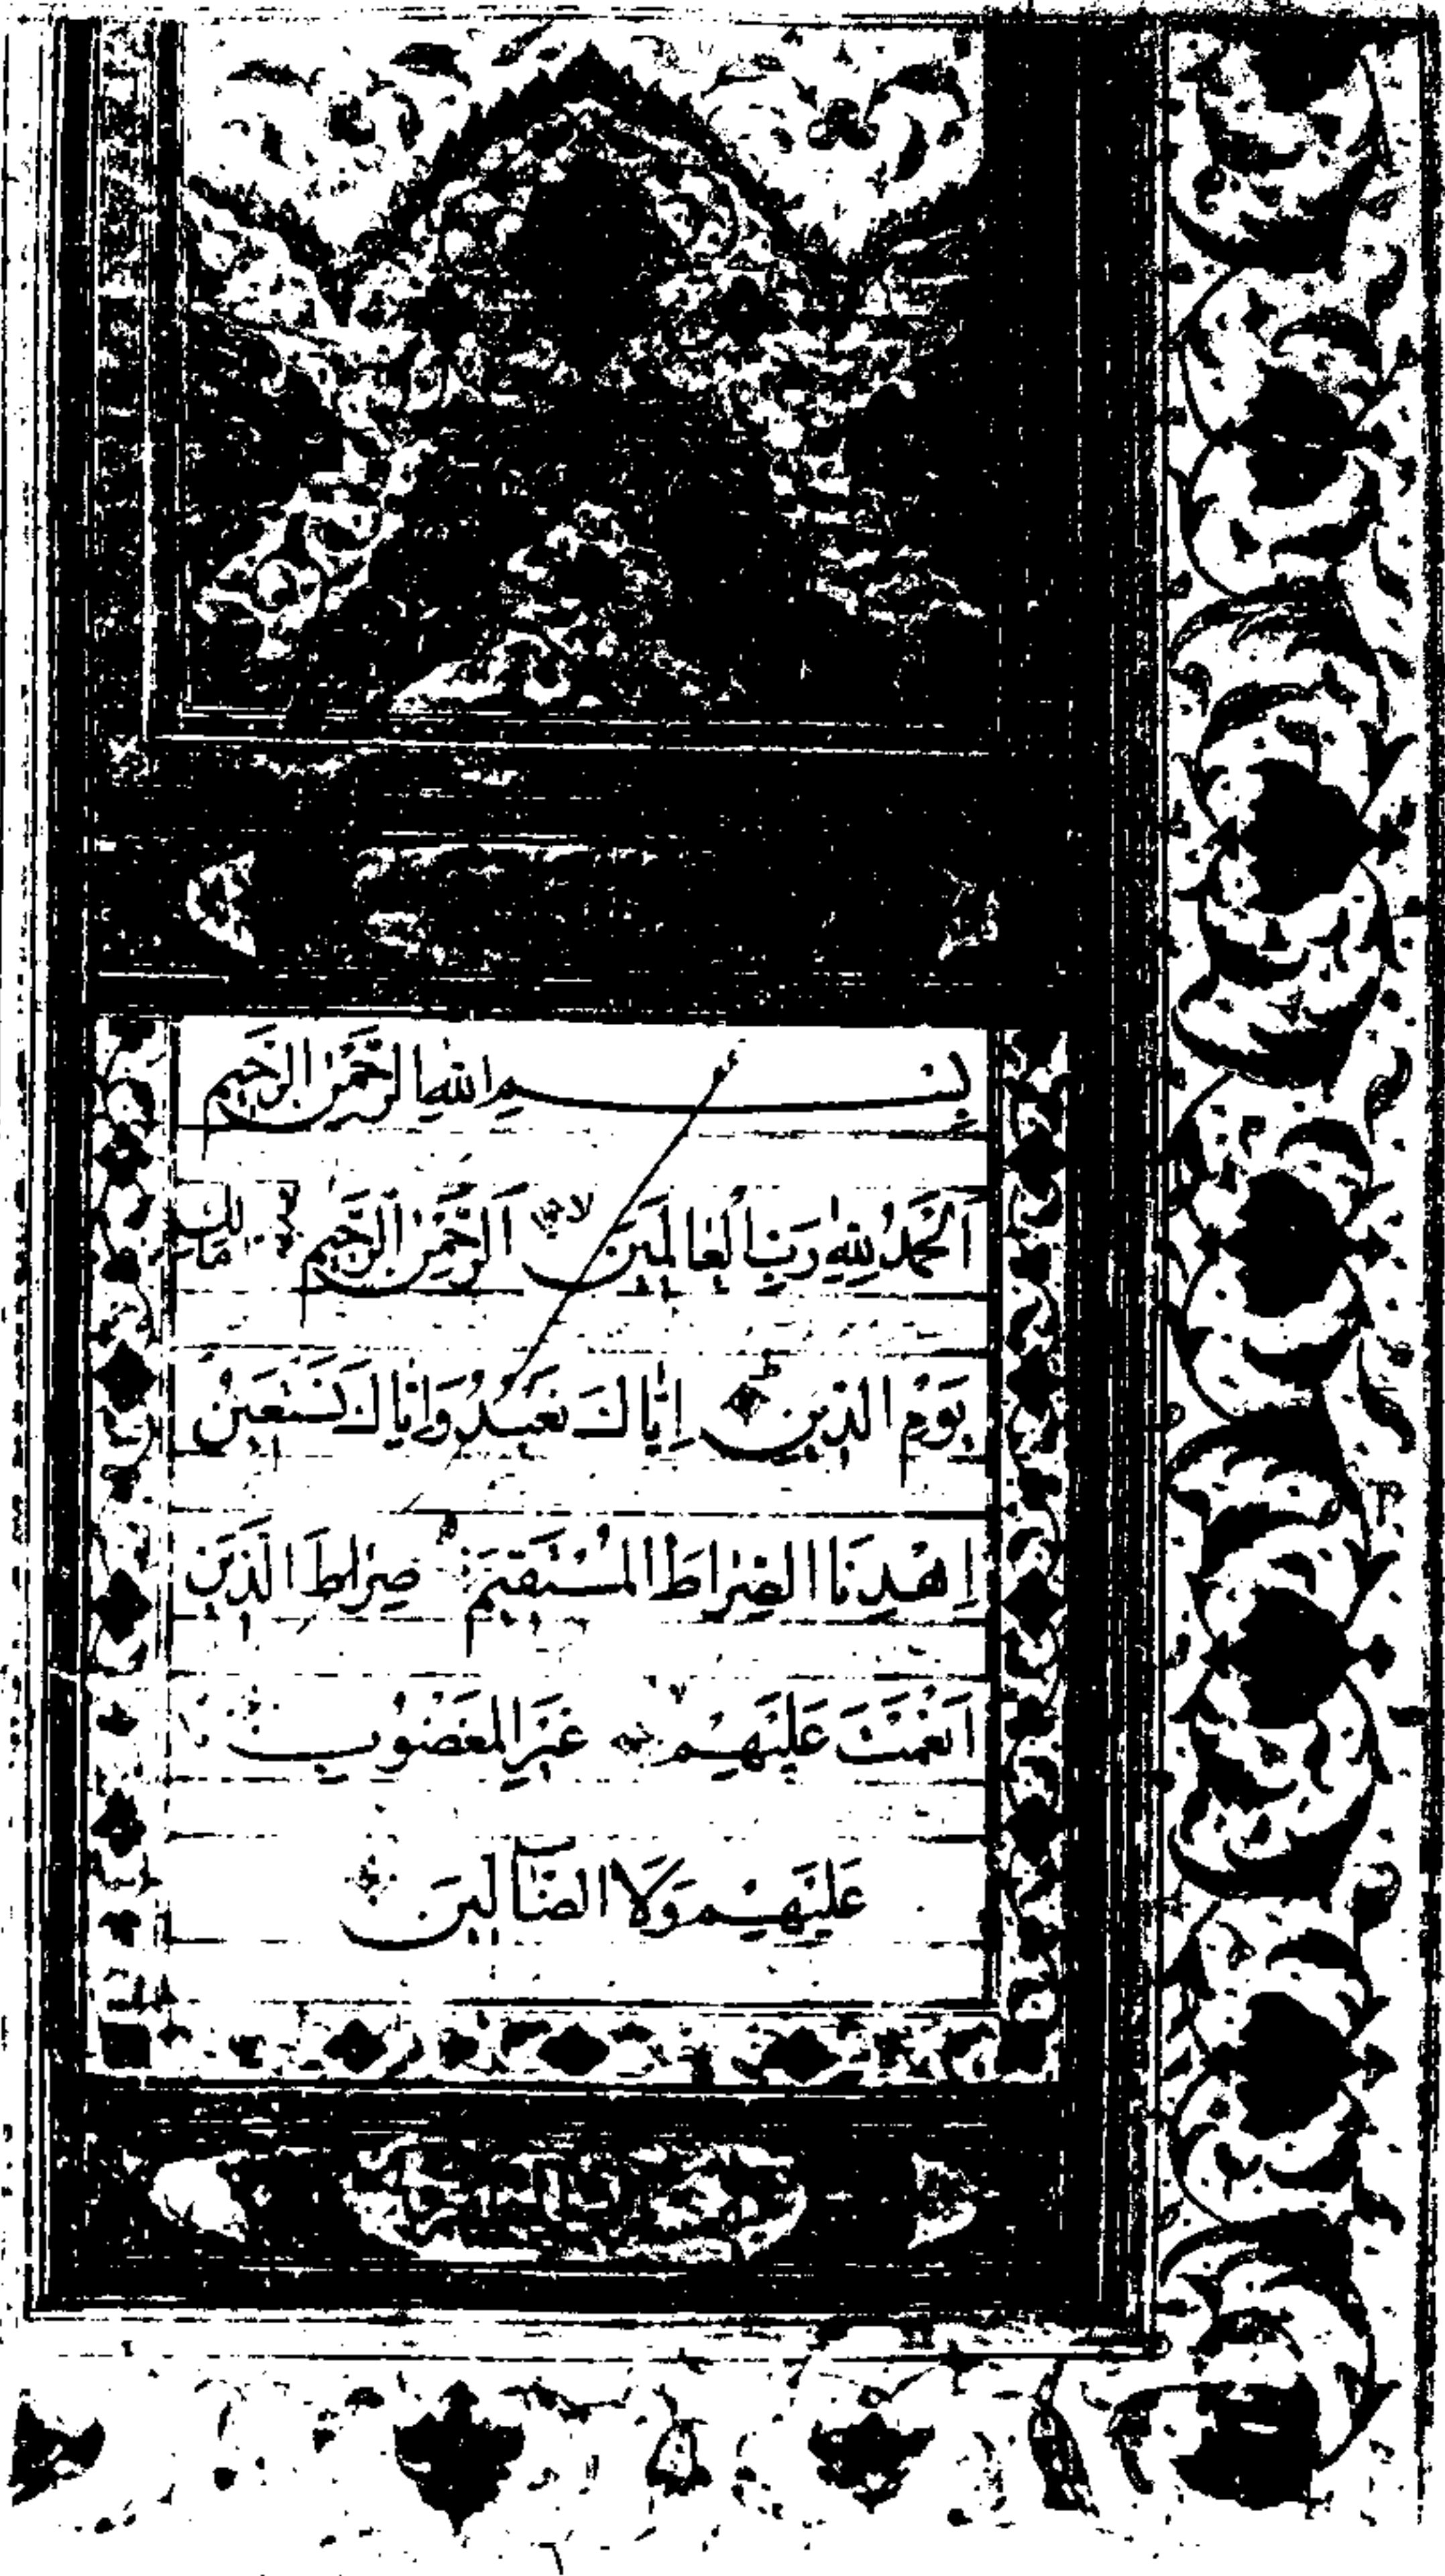 بِسْمِ اللهِ الرَّحْمٰنِ الرَّحِيمِ
اَلْحَمْدُ لِلّٰهِ رَبِّ الْعَالَمِينَ لا اَلرَّحْمٰنِ الرَّحِيمِ مَالِكِ
يَوْمِ الدِّينِ ط اِيَّاكَ نَعْبُدُ وَاِيَّاكَ نَسْتَعِينُ
اِهْدِنَا الصِّرَاطَ الْمُسْتَقِيمَ صِرَاطَ الَّذِينَ
اَنْعَمْتَ عَلَيْهِمْ لا غَيْرِ الْمَغْضُوبِ
عَلَيْهِمْ وَلَا الضَّآلِّينَ